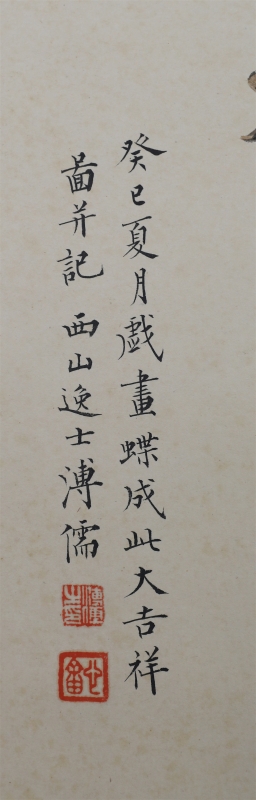 癸巳夏月戲畫蝶成此大吉祥
啚并記 西山逸士溥儒